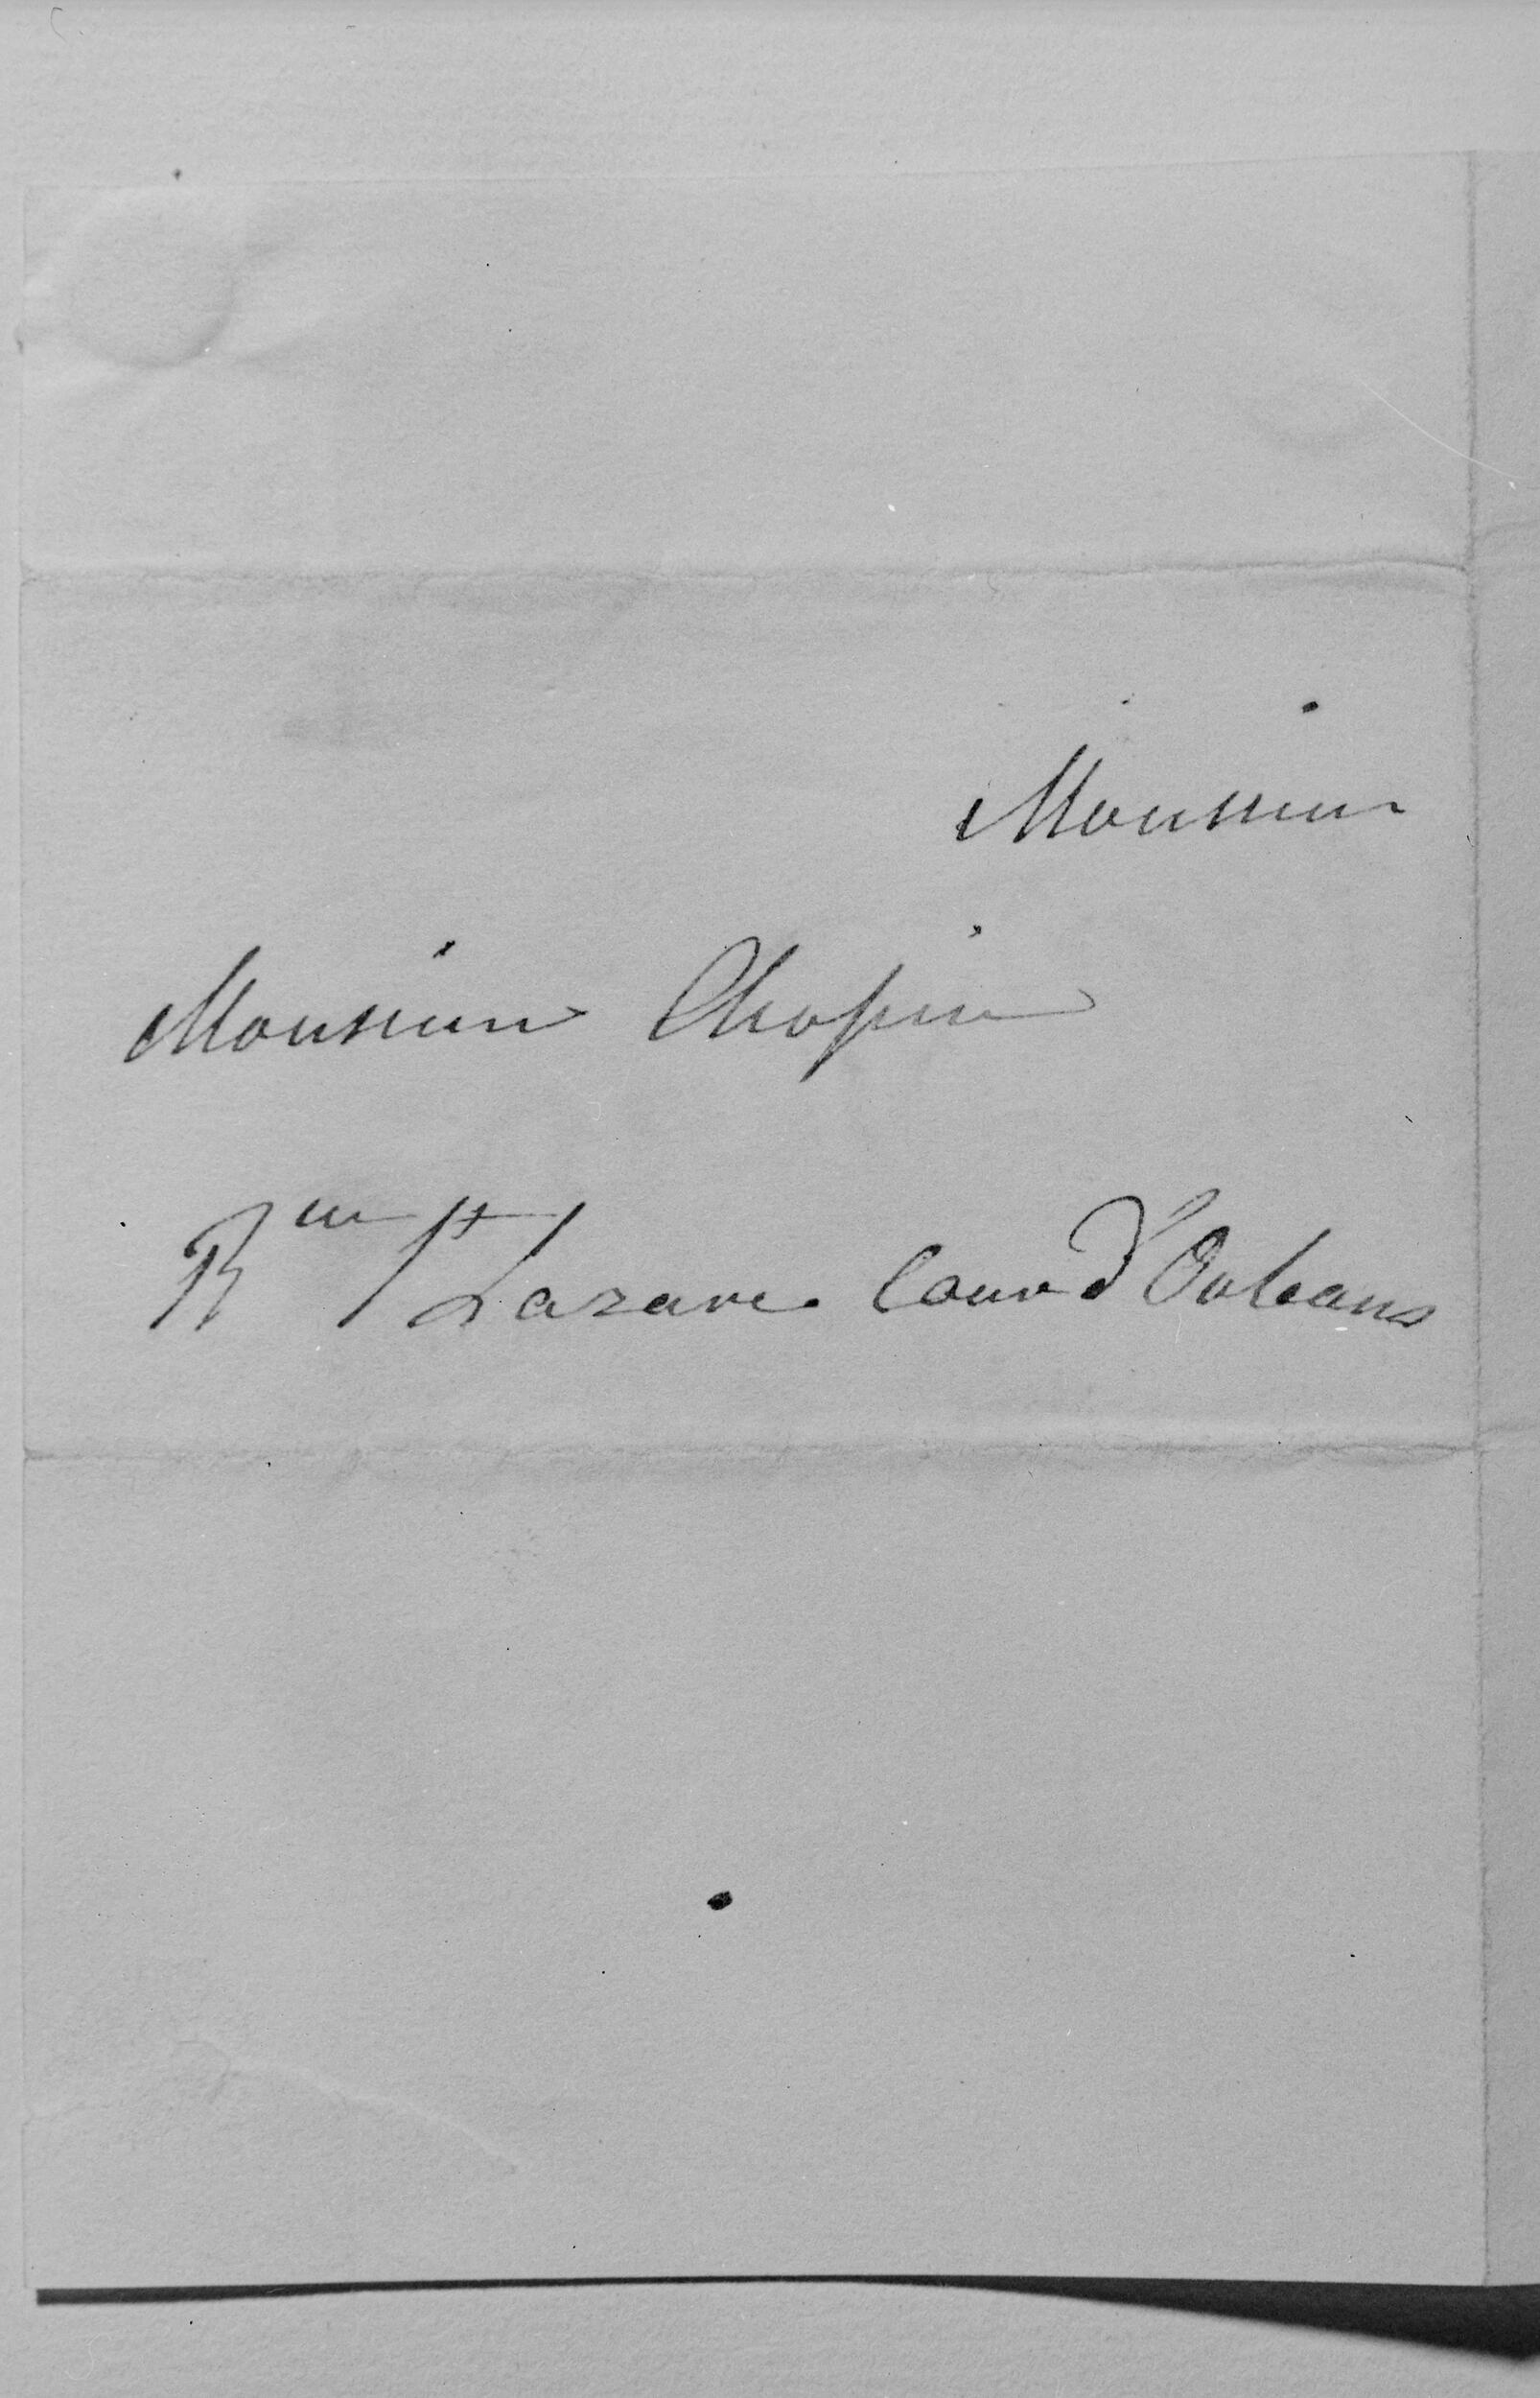 Monsieur
Monsieur Chopin
Rue St Lazare. Cour d'Orleans